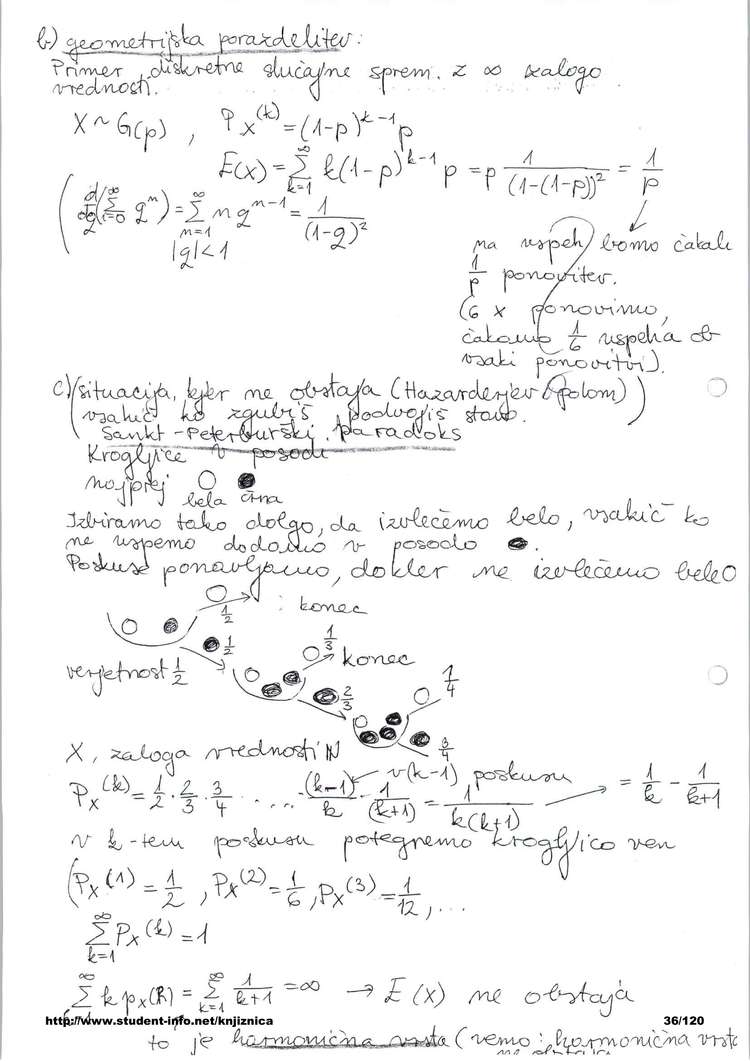 b) geometrijska porazdelitev:
Primer diskretne slučajne sprem. z ∞ zalogo
vrednosti.
X ~ G(p) , P_X(k) = (1-p)^{k-1} p
E(X) = ∑_{k=1}^{∞} k(1-p)^{k-1} p = p 1/(1-(1-p))² = 1/p
(d/dq(∑_{i=0}^{∞} q^n) = ∑_{n=1}^{∞} n q^{n-1} = 1/(1-q)²
|q|<1
na uspeh bomo čakali
1/p ponovitev.
(6 x ponovimo,
čakamo 1/6 uspeha ob
vsaki ponovitvi).
c) (situacija, kjer ne obstaja (Hazarderjev polom))
vsakič ko zgubiš podvojiš stavo.
Sankt-Peterburški paradoks
Krogljice v posodi
najprej
bela črna
Izbiramo tako dolgo, da izvlečemo belo, vsakič ko
ne uspemo dodamo v posodo ●.
Poskuse ponavljamo, dokler ne izvlečemo bele O
1/2 : konec
1/2
1/3 konec
verjetnost 1/2
2/3
1/4
3/4
X, zaloga vrednosti ℕ
v (k-1) poskusu
P_X(k) = 1/2 · 2/3 · 3/4 · ... · (k-1)/k · 1/(k+1) = 1/k(k+1) → = 1/k - 1/(k+1)
v k-tem poskusu potegnemo krogljico ven
(P_X(1) = 1/2 , P_X(2) = 1/6 , P_X(3) = 1/12 , ...
∑_{k=1}^{∞} P_X(k) = 1
∑ k p_X(k) = ∑_{k=1}^{∞} 1/(k+1) = ∞ → E(X) ne obstaja
http://www.student-info.net/knjiznica 36/120
to je harmonična vrsta (vemo: harmonična vrsta
ne obstaja